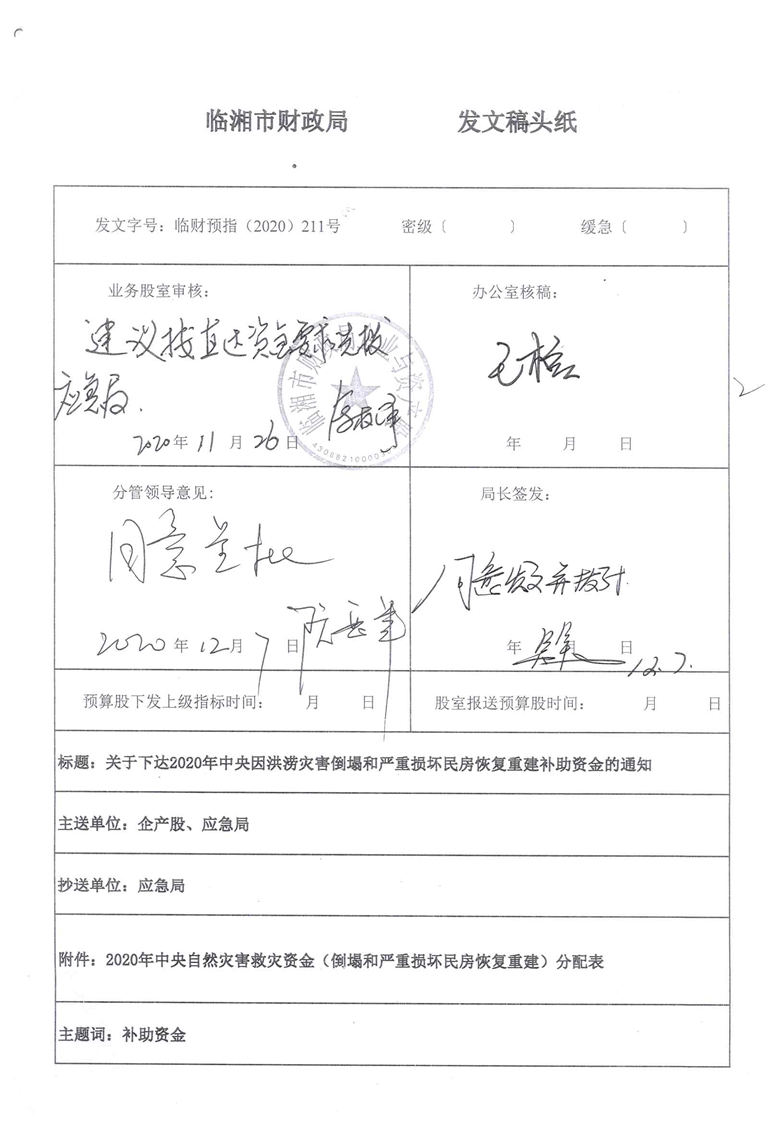 临湘市财政局 发文稿头纸
发文字号：临财预指（2020）211号 密级〔 〕 缓急〔 〕
业务股室审核：
建议按直达资金要求拨
应急局．
2020年11月26日
办公室核稿：
年 月 日
分管领导意见：
同意呈批
2020年12月7日
局长签发：
同意发文并拨付
年 日
12.7.
预算股下发上级指标时间： 月 日
股室报送预算股时间： 月 日
标题：关于下达2020年中央因洪涝灾害倒塌和严重损坏民房恢复重建补助资金的通知
主送单位：企产股、应急局
抄送单位：应急局
附件：2020年中央自然灾害救灾资金（倒塌和严重损坏民房恢复重建）分配表
主题词：补助资金